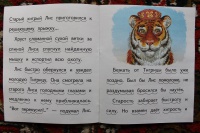 Старый хитрый Лис приготовился к
решающему прыжку...
Хрст сломанной сухой ветки за
спиной Лиса спугнул найденную
мышку и испортил всю охоту.
Лис быстро обернулся и увидел
молодую Тигрицу. Она смотрела на
старого Лиса голодными глазами и
медленно к нему приближалась.
подумал Лис.
Бежать от Тигрицы было уже
поздно. Был бы Лис помоложе, не
раздумывая бросился бы наутёк.
Старость забирает быстроту и
силу. Но взамен даёт хитрость и